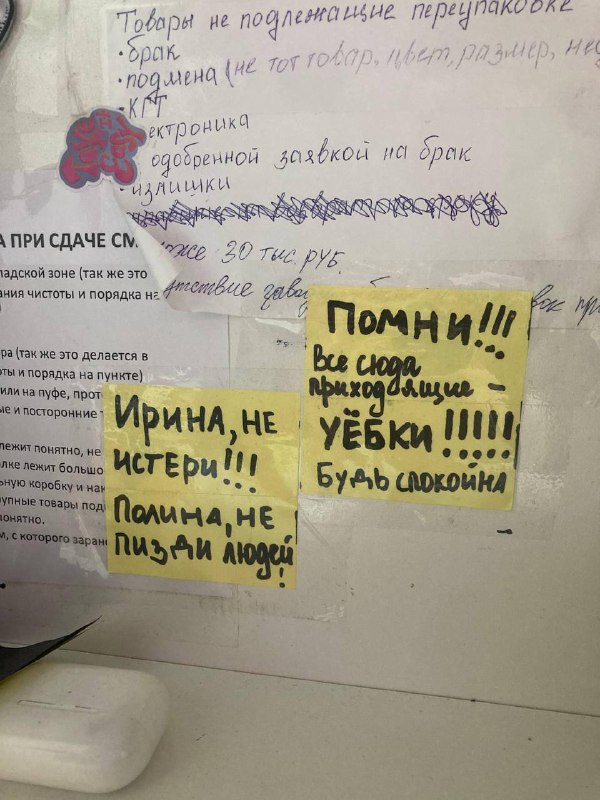 Товары не подлежащие переупаковке
• брак
• подмена (не тот товар, цвет, размер,
• КГТ
электроника
одобренной заявкой на брак
• излишки
30 тыс. руб.
А ПРИ СДАЧЕ
(так же это
чистоты и порядка
(так же это делается в
и порядка на пункте)
или на пуфе,
и посторонние
лежит понятно, не
лежит
коробку и
товары под
понятно.
с которого
ПОМНИ!!!
Все сюда
приходящие –
УЁБКИ !!!!!
Будь спокойна
Ирина, не
истери!!!
Полина, не
пизди людей!